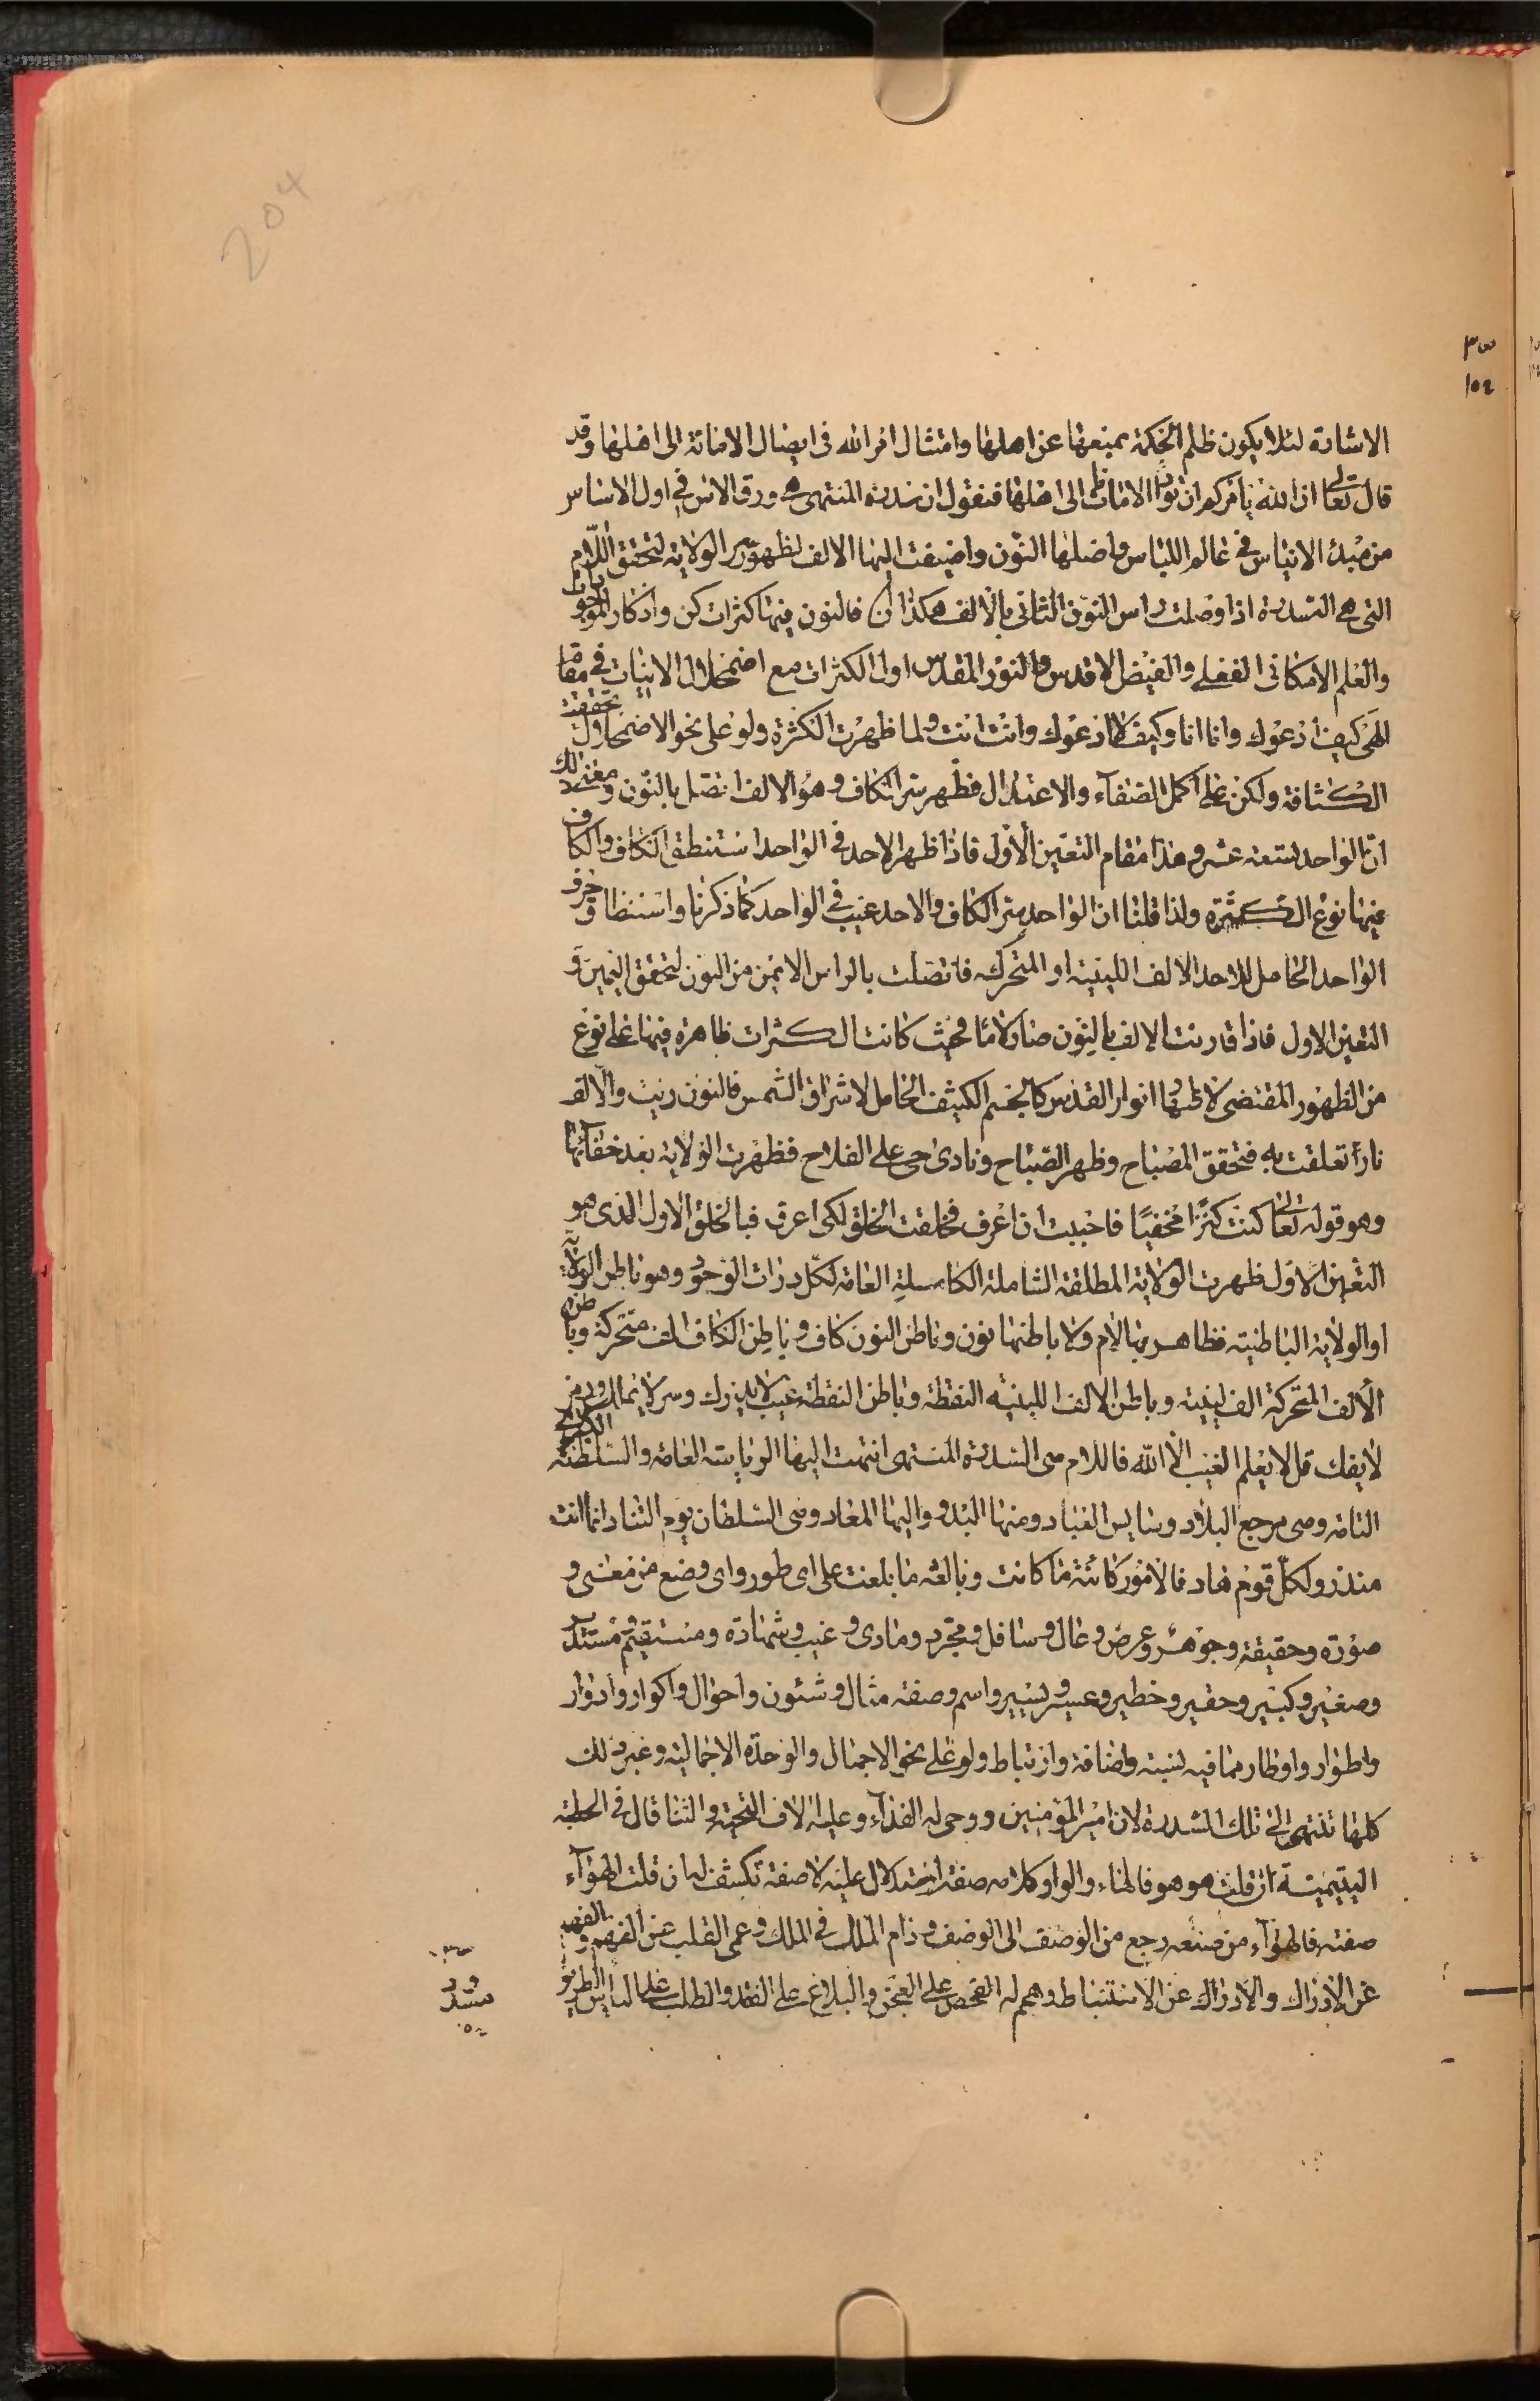 204
الاشارة لئلا يكون ظلم الحكمة بمنعها عن اهلها وامتثال امر الله فى ايصال الامانة الى اهلها وقد
قال تعالى ان الله يأمركم ان تؤدوا الامانات الى اهلها فنقول ان سدرة المنتهى هى ورق الاس فى اول الاساس
من مبدء الانياس فى عالم اللباس واصلها النون واضيفت اليها الالف لظهور سر الولاية لتحقق اللام
التى هى السدرة اذا وصلت راس النون الثانى بالالف هكذا فالنون فيها كثرات كن واذكار الموجودات
والعلم الامكانى الفعلى والفيض الاقدس والنور المقدس اول الكثرات مع اضمحلال الانيات فى مقام
الهى كيف ادعوك وانا انا وكيف لا ادعوك وانت انت ولما ظهرت الكثرة ولو على نحو الاضمحلال تحققت
الكثافة ولكن على اكمل الصفاء والاعتدال فظهر سر الكاف وهو الالف اتصل بالنون ومعنى ذلك
ان الواحد تسعة عشر وهذا مقام التعين الاول فاذا ظهر الاحد فى الواحد استنطق الكاف والكاف
فيها نوع الكثرة ولذا قلنا ان الواحد سر الكاف والاحد غيب فى الواحد كما ذكرنا واستنطاق حرف
الواحد الحامل للاحد الالف اللينية او المتحركه فاتصلت بالراس الايمن من النون لتحقق اليمين و
التعين الاول فاذا قارنت الالف بالنون صار لاما فحيث كانت الكثرات ظاهرة فيها على نوع
من الظهور المقتضى لاظهار انوار القدس كالجسم الكثيف الحامل لاشراق الشمس فالنون زيت والالف
نار تعلقت به فتحقق المصباح وظهر الصباح ونادى حى على الفلاح فظهرت الولاية بعد خفائها
وهو قوله تعالى كنت كنزا مخفيا فاحببت ان اعرف فخلقت الخلق لكى اعرف فبالخلق الاول الذى هو
التعين الاول ظهرت الولاية المطلقة الشاملة الكاملة العامة لكل ذرات الوجود وهو باطن الولاية
او الولاية الباطنية فظاهرها لام ولا باطنها نون وباطن النون كاف وباطن الكاف الف متحركة وباطن
الالف المتحركة الف لينية وباطن الالف اللينية النقطة وباطن النقطة غيب لا يدرك وسر لا ينال ورمز
لا يفك قل لا يعلم الغيب الا الله فاللام هى السدرة المنتهى انتهت اليها الرياسة العامة والسلطنة الكبرى
التامة وهى مرجع البلاد وسايس العباد ومنها البدو واليها المعاد وهى السلطان يوم التناد انما انت
منذر ولكل قوم هاد فالامور كائنة ما كانت وبالغة ما بلغت على اى طور واى وضع من معنى و
صورة وحقيقة وجوهر وعرض وعال وسافل ومجرد ومادى وغيب وشهادة ومستقيم ومستدير
وصغير وكبير وحقير وخطير وعسير ويسير واسم وصفة مثال وشئون واحوال واكوار وادوار
واطوار واوطار مما فيه نسبة واضافة وارتباط ولو على نحو الاجمال والوحدة الاجمالية وغير ذلك
كلها تنتهى الى تلك السدرة لان امير المؤمنين روحى له الفداء وعليه الاف التحية والثنا قال فى الخطبة
اليتيمية ان قلت هو هو فالهاء والواو كلامه صفة استدلال عليه لا صفة تكشف له ان قلت الهواء
صفته فالهواء من صنعه رجع من الوصف الى الوصف ودام الملك فى الملك وعمى القلب عن الفهم والفهم
عن الادراك والادراك عن الاستنباط وهجم له الفحص على العجز والبلاغ على الفقد والطلب على الياس الطريق